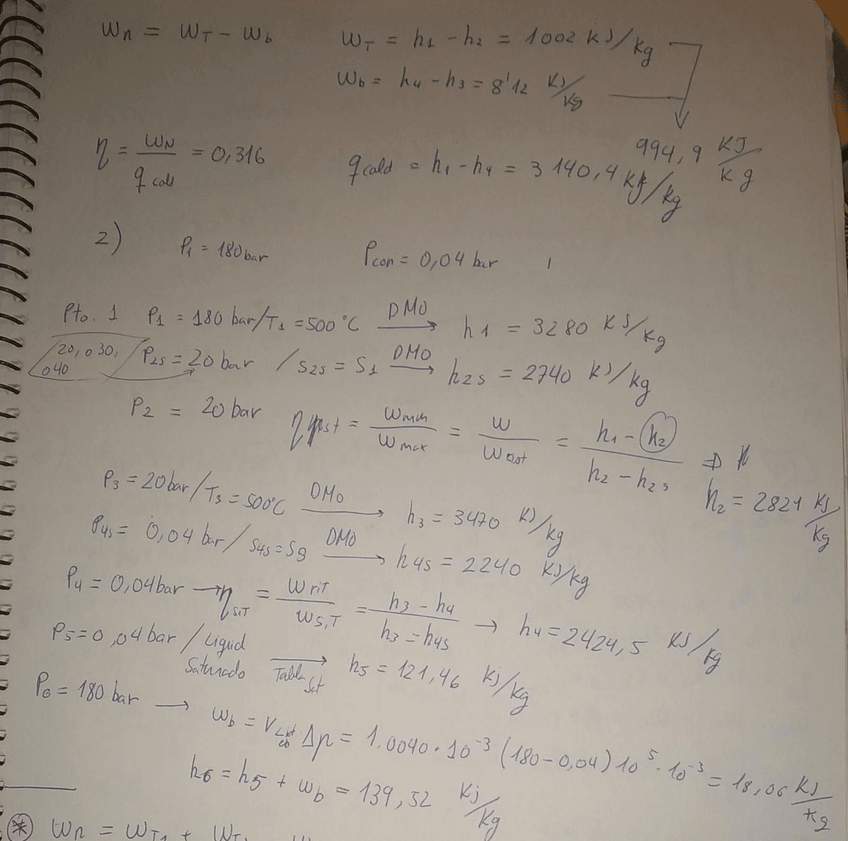 Wn = WT - Wb    WT = h1 - h2 = 1002 KJ/kg
Wb = h4 - h3 = 8'12 KJ/kg
994,9 KJ/kg
η = WN/qcald = 0,316    qcald = h1 - h4 = 3140,4 KJ/kg
2)    P1 = 180 bar    Pcon = 0,04 bar
Pto. 1    P1 = 180 bar/T1 = 500°C DMO → h1 = 3280 KJ/kg
20, 030, 040    P2s = 20 bar / s2s = s1 DMO → h2s = 2740 KJ/kg
P2 = 20 bar    = W/W = (h1 - h2)/(h2 - h2s) ⇒ h2 = 2821 KJ/kg
P3 = 20 bar/T3 = 500°C DMO → h3 = 3470 KJ/kg
P4s = 0,04 bar/ s4s = s3 DMO → h4s = 2240 KJ/kg
P4 = 0,04 bar → ηsiT = WriT/Ws,T = (h3 - h4)/(h3 - h4s) → h4 = 2424,5 KJ/kg
P5 = 0,04 bar / Liquid
Saturado Tabla Sat → h5 = 121,46 KJ/kg
P6 = 180 bar → Wb = V Δp = 1.0040·10⁻³ (180 - 0,04) 10⁵·10⁻³ = 18,06 KJ/kg
h6 = h5 + Wb = 139,52 KJ/kg
* Wn = WT1 +